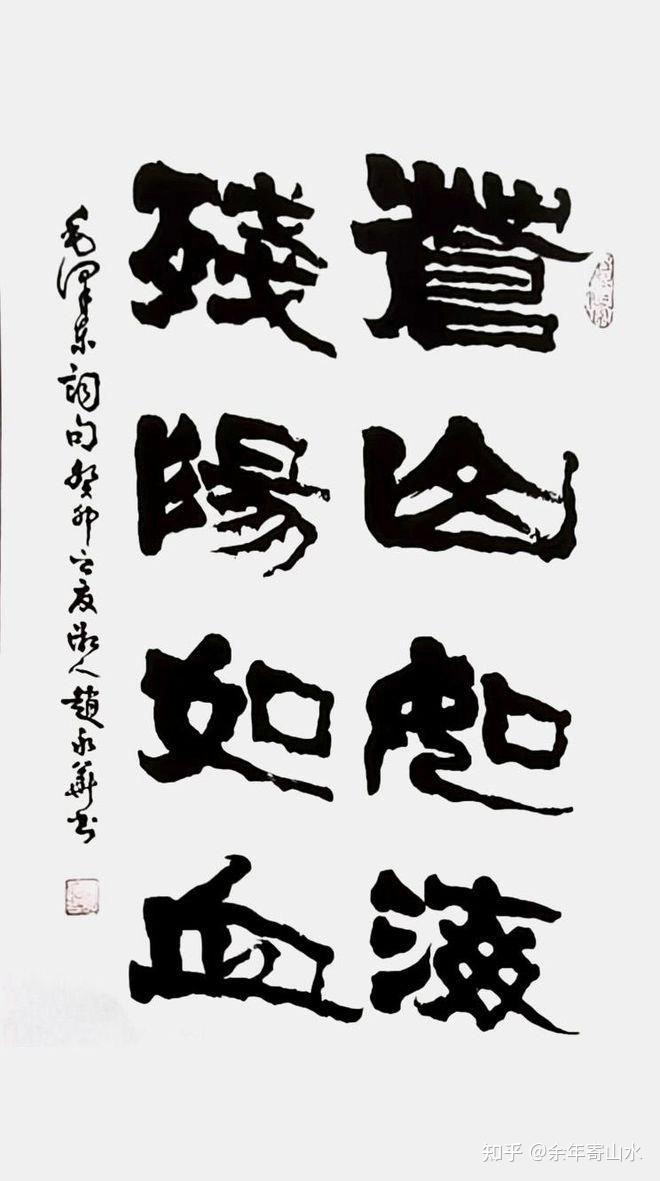 蒼山如海
殘陽如血
毛泽东詞句癸卯之夏人趙永華书
知乎 @余年寄山水